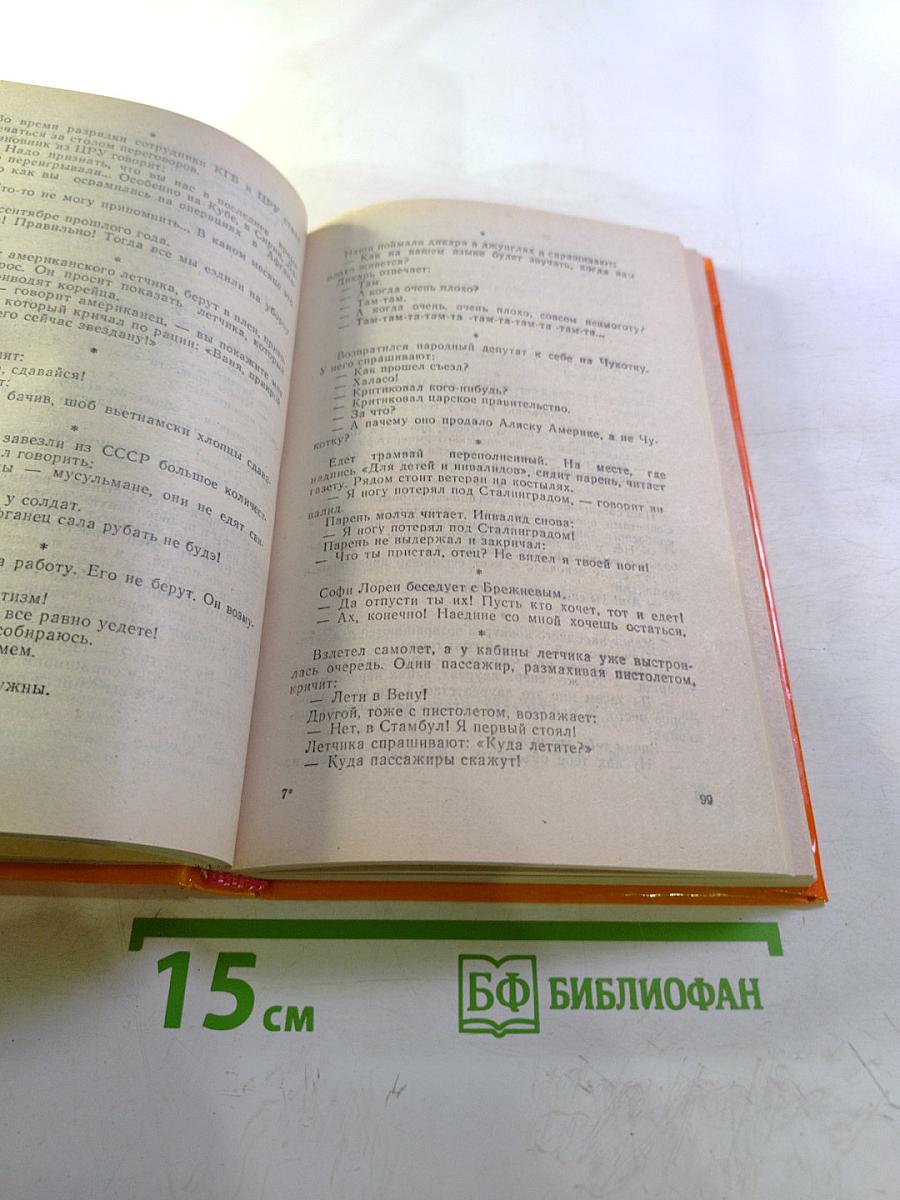 *
Во время разрядки сотрудники КГБ и ЦРУ стали
чаться за столом переговоров.
иновник из ЦРУ говорит:
Надо признать, что вы нас в последнее время
переигрывали... Особенно на Кубе, в Сирии
как вы осрамились на операциях в Афган
то-то не могу припомнить... В каком месяце это
сентябре прошлого года.
! Правильно! Тогда все мы ездили на уборку
*
американского летчика, берут в плен, приво
рос. Он просит показать летчика, который
риводят корейца.
— говорит американец, — вы покажите мне
который кричал по рации: «Ваня, прикрой
его сейчас звездану!»
*
ит:
, сдавайся!
т:
бачив, шоб вьетнамски хлопцы сдава-
*
завезли из СССР большое количест-
л говорить:
цы — мусульмане, они не едят сви-
у солдат.
фганец сала рубать не будэ!
*
а работу. Его не берут. Он возму-
тизм!
все равно уедете!
собираюсь.
мем.
ужны.
*
Наши поймали дикаря в джунглях и спрашивают:
— Как на вашем языке будет звучать, когда вам
плохо живется?
Дикарь отвечает:
— Там.
— А когда очень плохо?
— Там-там.
— А когда очень, очень плохо, совсем невмоготу?
— Там-там-та-там-та -там-та-там-та -там-та...
*
Возвратился народный депутат к себе на Чукотку.
У него спрашивают:
— Как прошел съезд?
— Халасо!
— Критиковал кого-нибудь?
— Критиковал царское правительство.
— За что?
— А пачему оно продало Аляску Америке, а не Чу-
котку?
*
Едет трамвай переполненный. На месте, где
надпись «Для детей и инвалидов», сидит парень, читает
газету. Рядом стоит ветеран на костылях.
— Я ногу потерял под Сталинградом, — говорит ин
валид.
Парень молча читает. Инвалид снова:
— Я ногу потерял под Сталинградом!
Парень не выдержал и закричал:
— Что ты пристал, отец? Не видел я твоей ноги!
*
Софи Лорен беседует с Брежневым.
— Да отпусти ты их! Пусть кто хочет, тот и едет!
— Ах, конечно! Наедине со мной хочешь остаться.
*
Взлетел самолет, а у кабины летчика уже выстрои-
лась очередь. Один пассажир, размахивая пистолетом,
кричит:
— Лети в Вену!
Другой, тоже с пистолетом, возражает:
— Нет, в Стамбул! Я первый стоял!
Летчика спрашивают: «Куда летите?»
— Куда пассажиры скажут!
7*
99
15 см
БФ БИБЛИОФАН